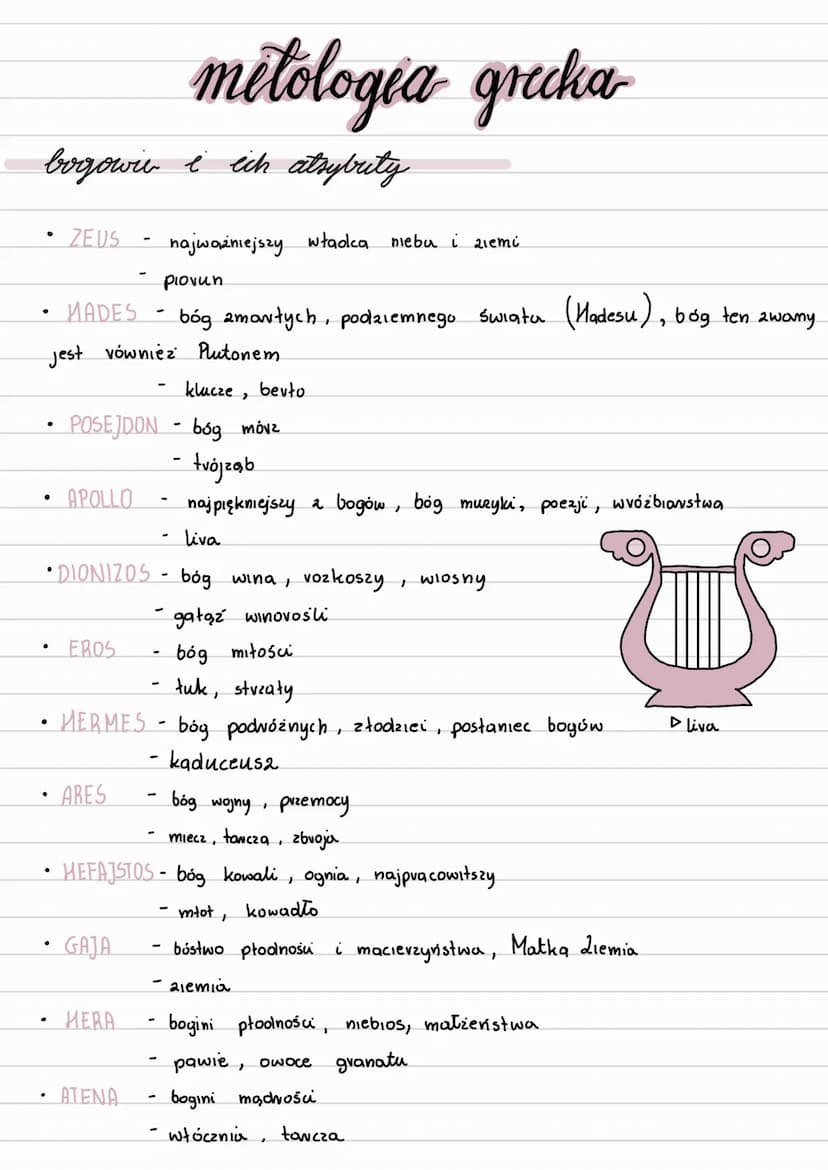 mitologia grecka
bogowie i ich atrybuty
• ZEUS - najważniejszy władca nieba i ziemi
- piorun
• HADES - bóg zmarłych, podziemnego świata (Hadesu), bóg ten zwany
jest również Plutonem
- klucze, berło
• POSEJDON - bóg mórz
- trójząb
• APOLLO - najpiękniejszy z bogów, bóg muzyki, poezji, wróżbiarstwa
- lira
• DIONIZOS - bóg wina, rozkoszy, wiosny
- gałąź winorośli
• EROS - bóg miłości
- łuk, strzały
• HERMES - bóg podróżnych, złodziei, posłaniec bogów
▷ lira
- kaduceusz
• ARES - bóg wojny, przemocy
- miecz, tarcza, zbroja
• HEFAJSTOS - bóg kowali, ognia, najpracowitszy
- młot, kowadło
• GAJA - bóstwo płodności i macierzyństwa, Matka Ziemia
- ziemia
• HERA - bogini płodności, niebios, małżeństwa
- pawie, owoce granatu
• ATENA - bogini mądrości
- włócznia, tarcza